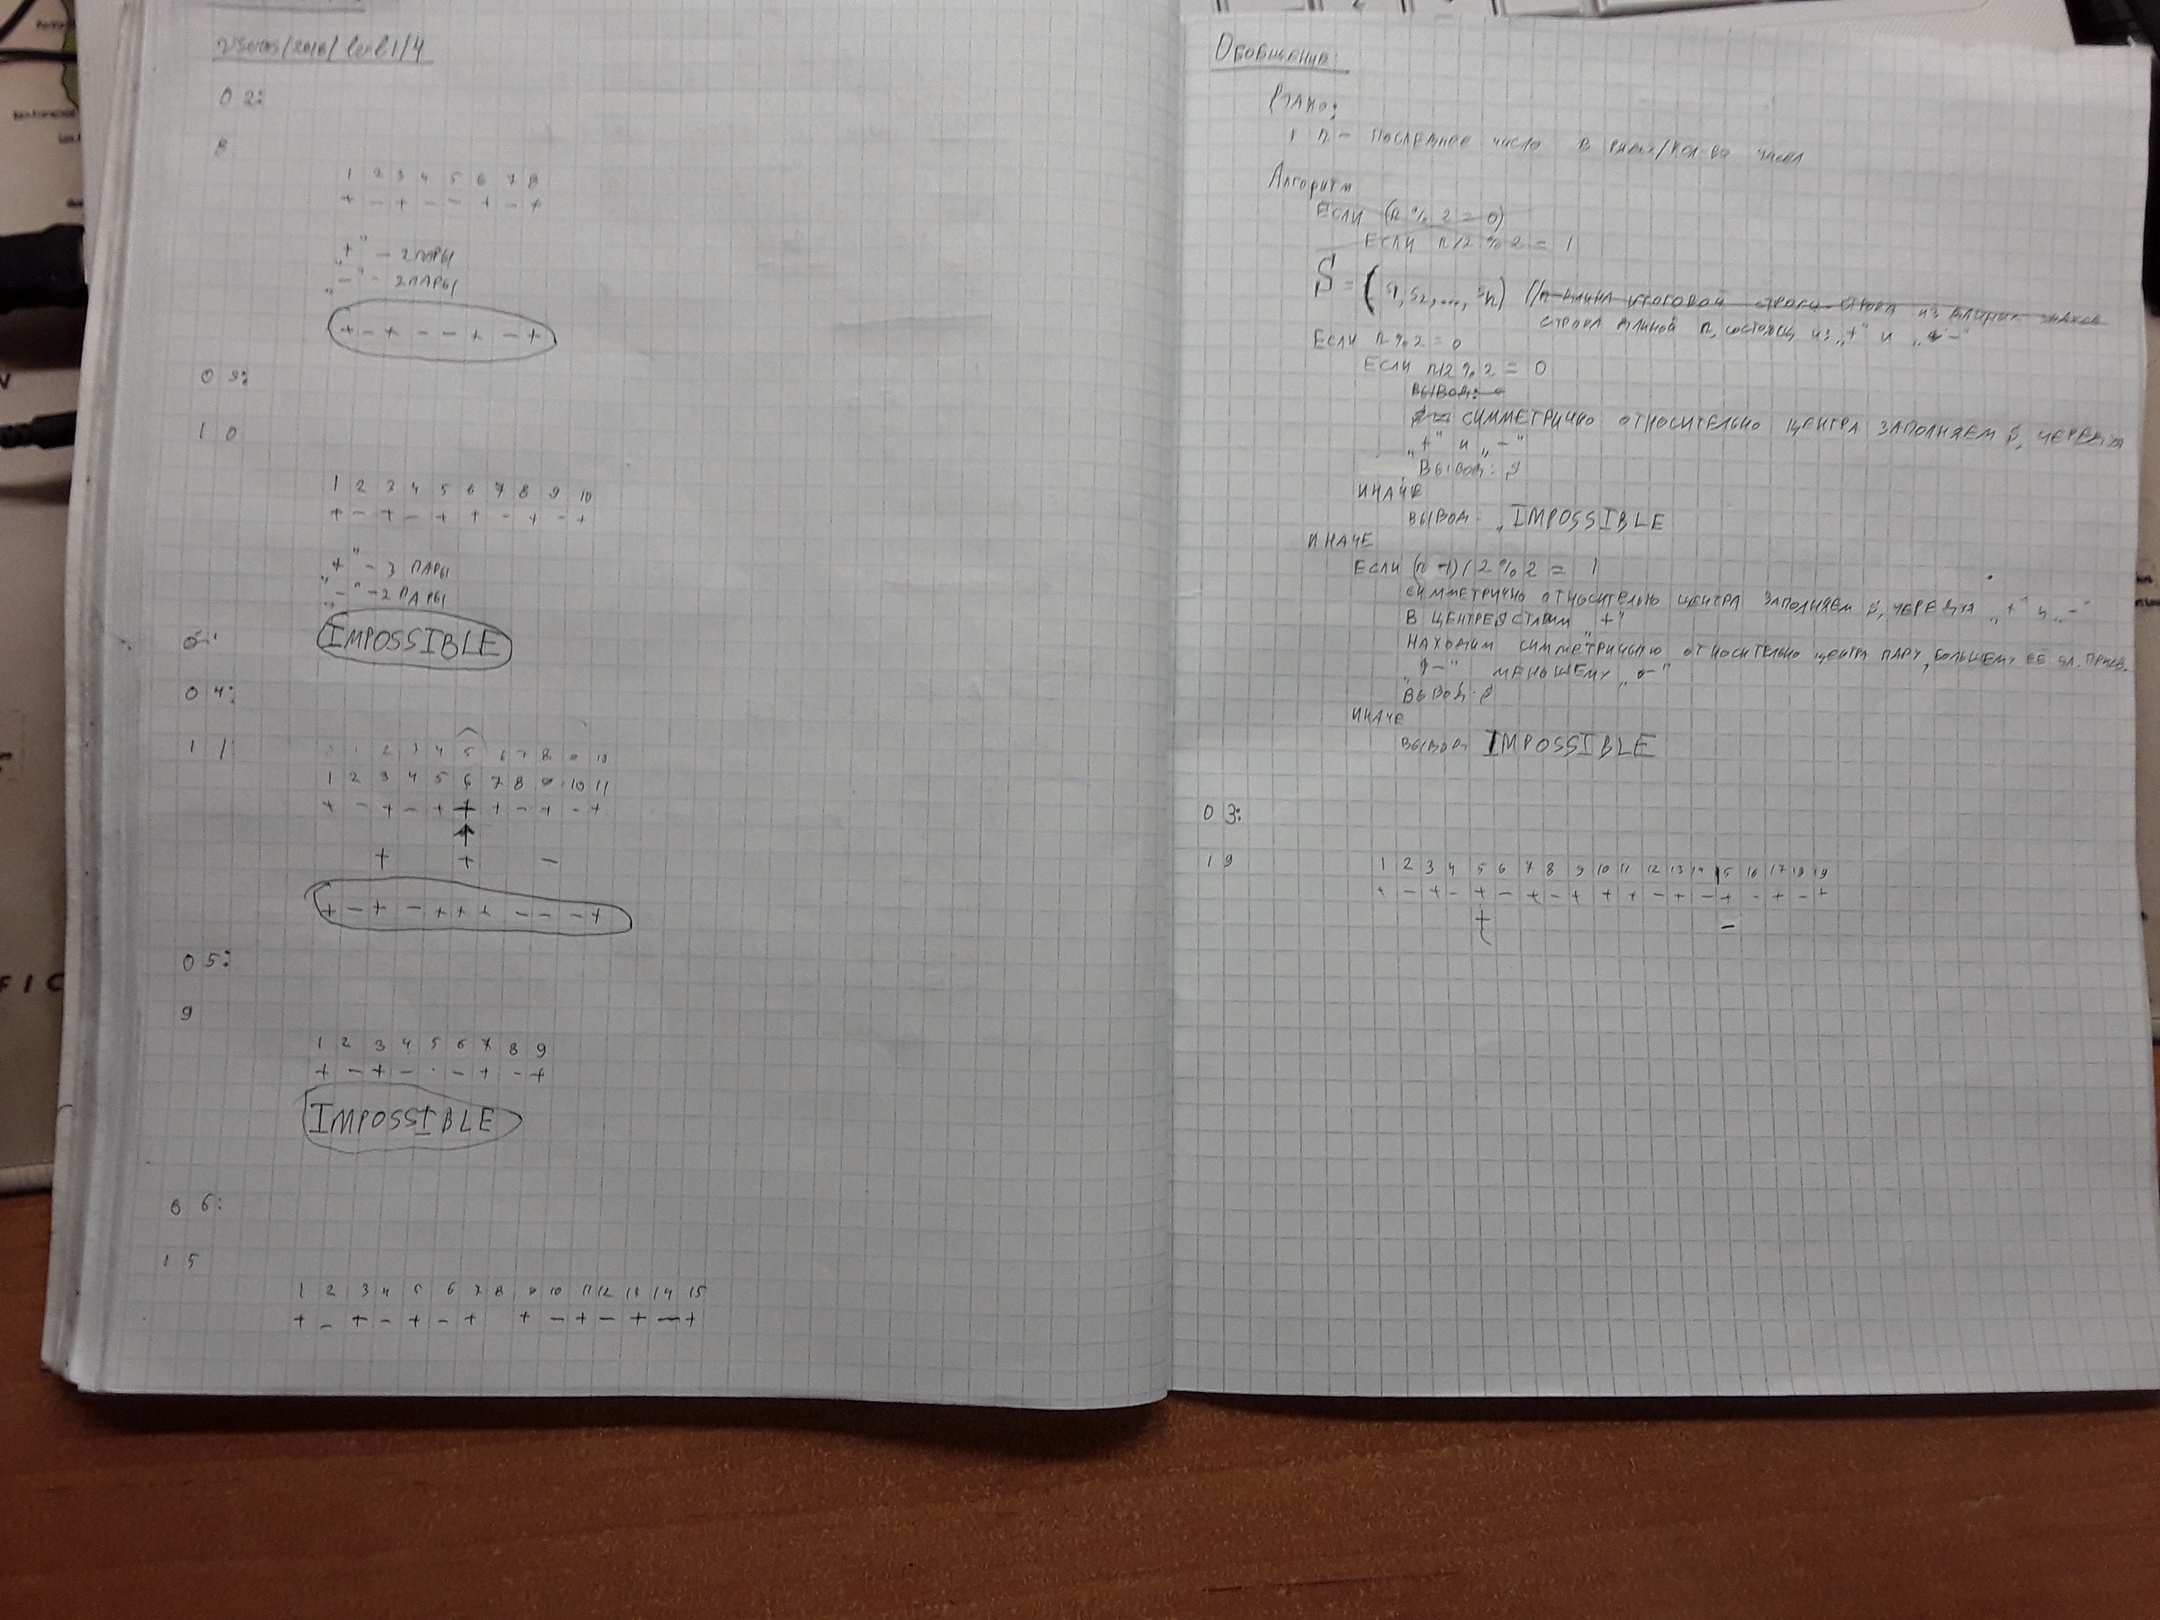 02:
8
1 2 3 4 5 6 7 8
+ - + - - + - +
„+" - 2 ПАРЫ
„-" - 2 ПАРЫ
+ - + - - + - +
03:
10
1 2 3 4 5 6 7 8 9 10
+ - + - + + - + - +
„+" - 3 ПАРЫ
„-" - 2 ПАРЫ
IMPOSSIBLE
04:
11
1 2 3 4 5 6 7 8 9 10
1 2 3 4 5 6 7 8 9 10 11
+ - + - + + + - + - +
+ + -
+ - + - + + + - - - +
05:
9
1 2 3 4 5 6 7 8 9
+ - + - . - + - +
IMPOSSIBLE
06:
15
1 2 3 4 5 6 7 8 9 10 11 12 13 14 15
+ - + - + - + + - + - + - +
ОБОБЩЕНИЕ:
ДАНО:
1 n - ПОСЛЕДНЕЕ ЧИСЛО В РЯДУ/КОЛ-ВО ЧИСЕЛ
Алгоритм
ЕСЛИ (n % 2 = 0)
ЕСЛИ n/2 % 2 = 1
S = (s1, s2, ..., sn) //
СТРОКА ДЛИНОЙ n, СОСТОЯЩ ИЗ „+" И „-"
ЕСЛИ n % 2 = 0
ЕСЛИ n/2 % 2 = 0
ВЫВОД:
СИММЕТРИЧНО ОТНОСИТЕЛЬНО ЦЕНТРА ЗАПОЛНЯЕМ S, ЧЕРЕДУЯ
„+" и „-"
ВЫВОД: S
ИНАЧЕ
ВЫВОД: „IMPOSSIBLE
ИНАЧЕ
ЕСЛИ (n-1)/2 % 2 = 1
СИММЕТРИЧНО ОТНОСИТЕЛЬНО ЦЕНТРА ЗАПОЛНЯЕМ S, ЧЕРЕДУЯ „+" и „-"
В ЦЕНТРЕ СТАВИМ „+"
НАХОДИМ СИММЕТРИЧНУЮ ОТНОСИТЕЛЬНО ЦЕНТРА ПАРУ, БОЛЬШЕМУ ЕЁ ЭЛ. ПРИСВ.
„-" МЕНЬШЕМУ
ВЫВОД: S
ИНАЧЕ
ВЫВОД: IMPOSSIBLE
03:
19
1 2 3 4 5 6 7 8 9 10 11 12 13 14 15 16 17 18 19
+ - + - + - + - + + + - + - + - + - +
+ -